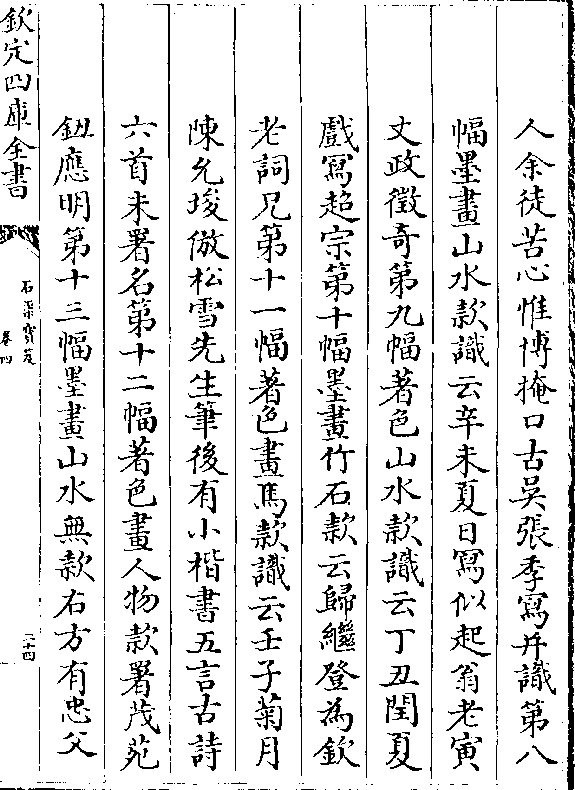 人余徒苦心惟博掩口古吳張季寫幷識第八
幅墨畫山水款識云辛未夏日寫似起翁老寅
丈政徵奇第九幅著色山水款識云丁丑閏夏
戲寫超宗第十幅墨畫竹石款云歸繼登為欽
老詞兄第十一幅著色畫馬款識云壬子菊月
陳允埈倣松雪先生筆後有小楷書五言古詩
六首未署名第十二幅著色畫人物款署茂苑
鈕應明第十三幅墨畫山水無款右方有忠父
欽定四庫全書
石渠寶笈
卷四
二十四